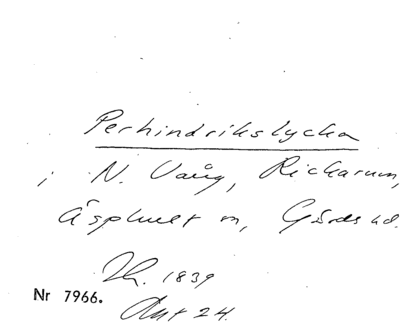 Perhindrikslycka
i N. Vång, Rickarum,
Äsphult sn, Gärds hd.
Th. 1839
Nr 7966.
Akt 24.